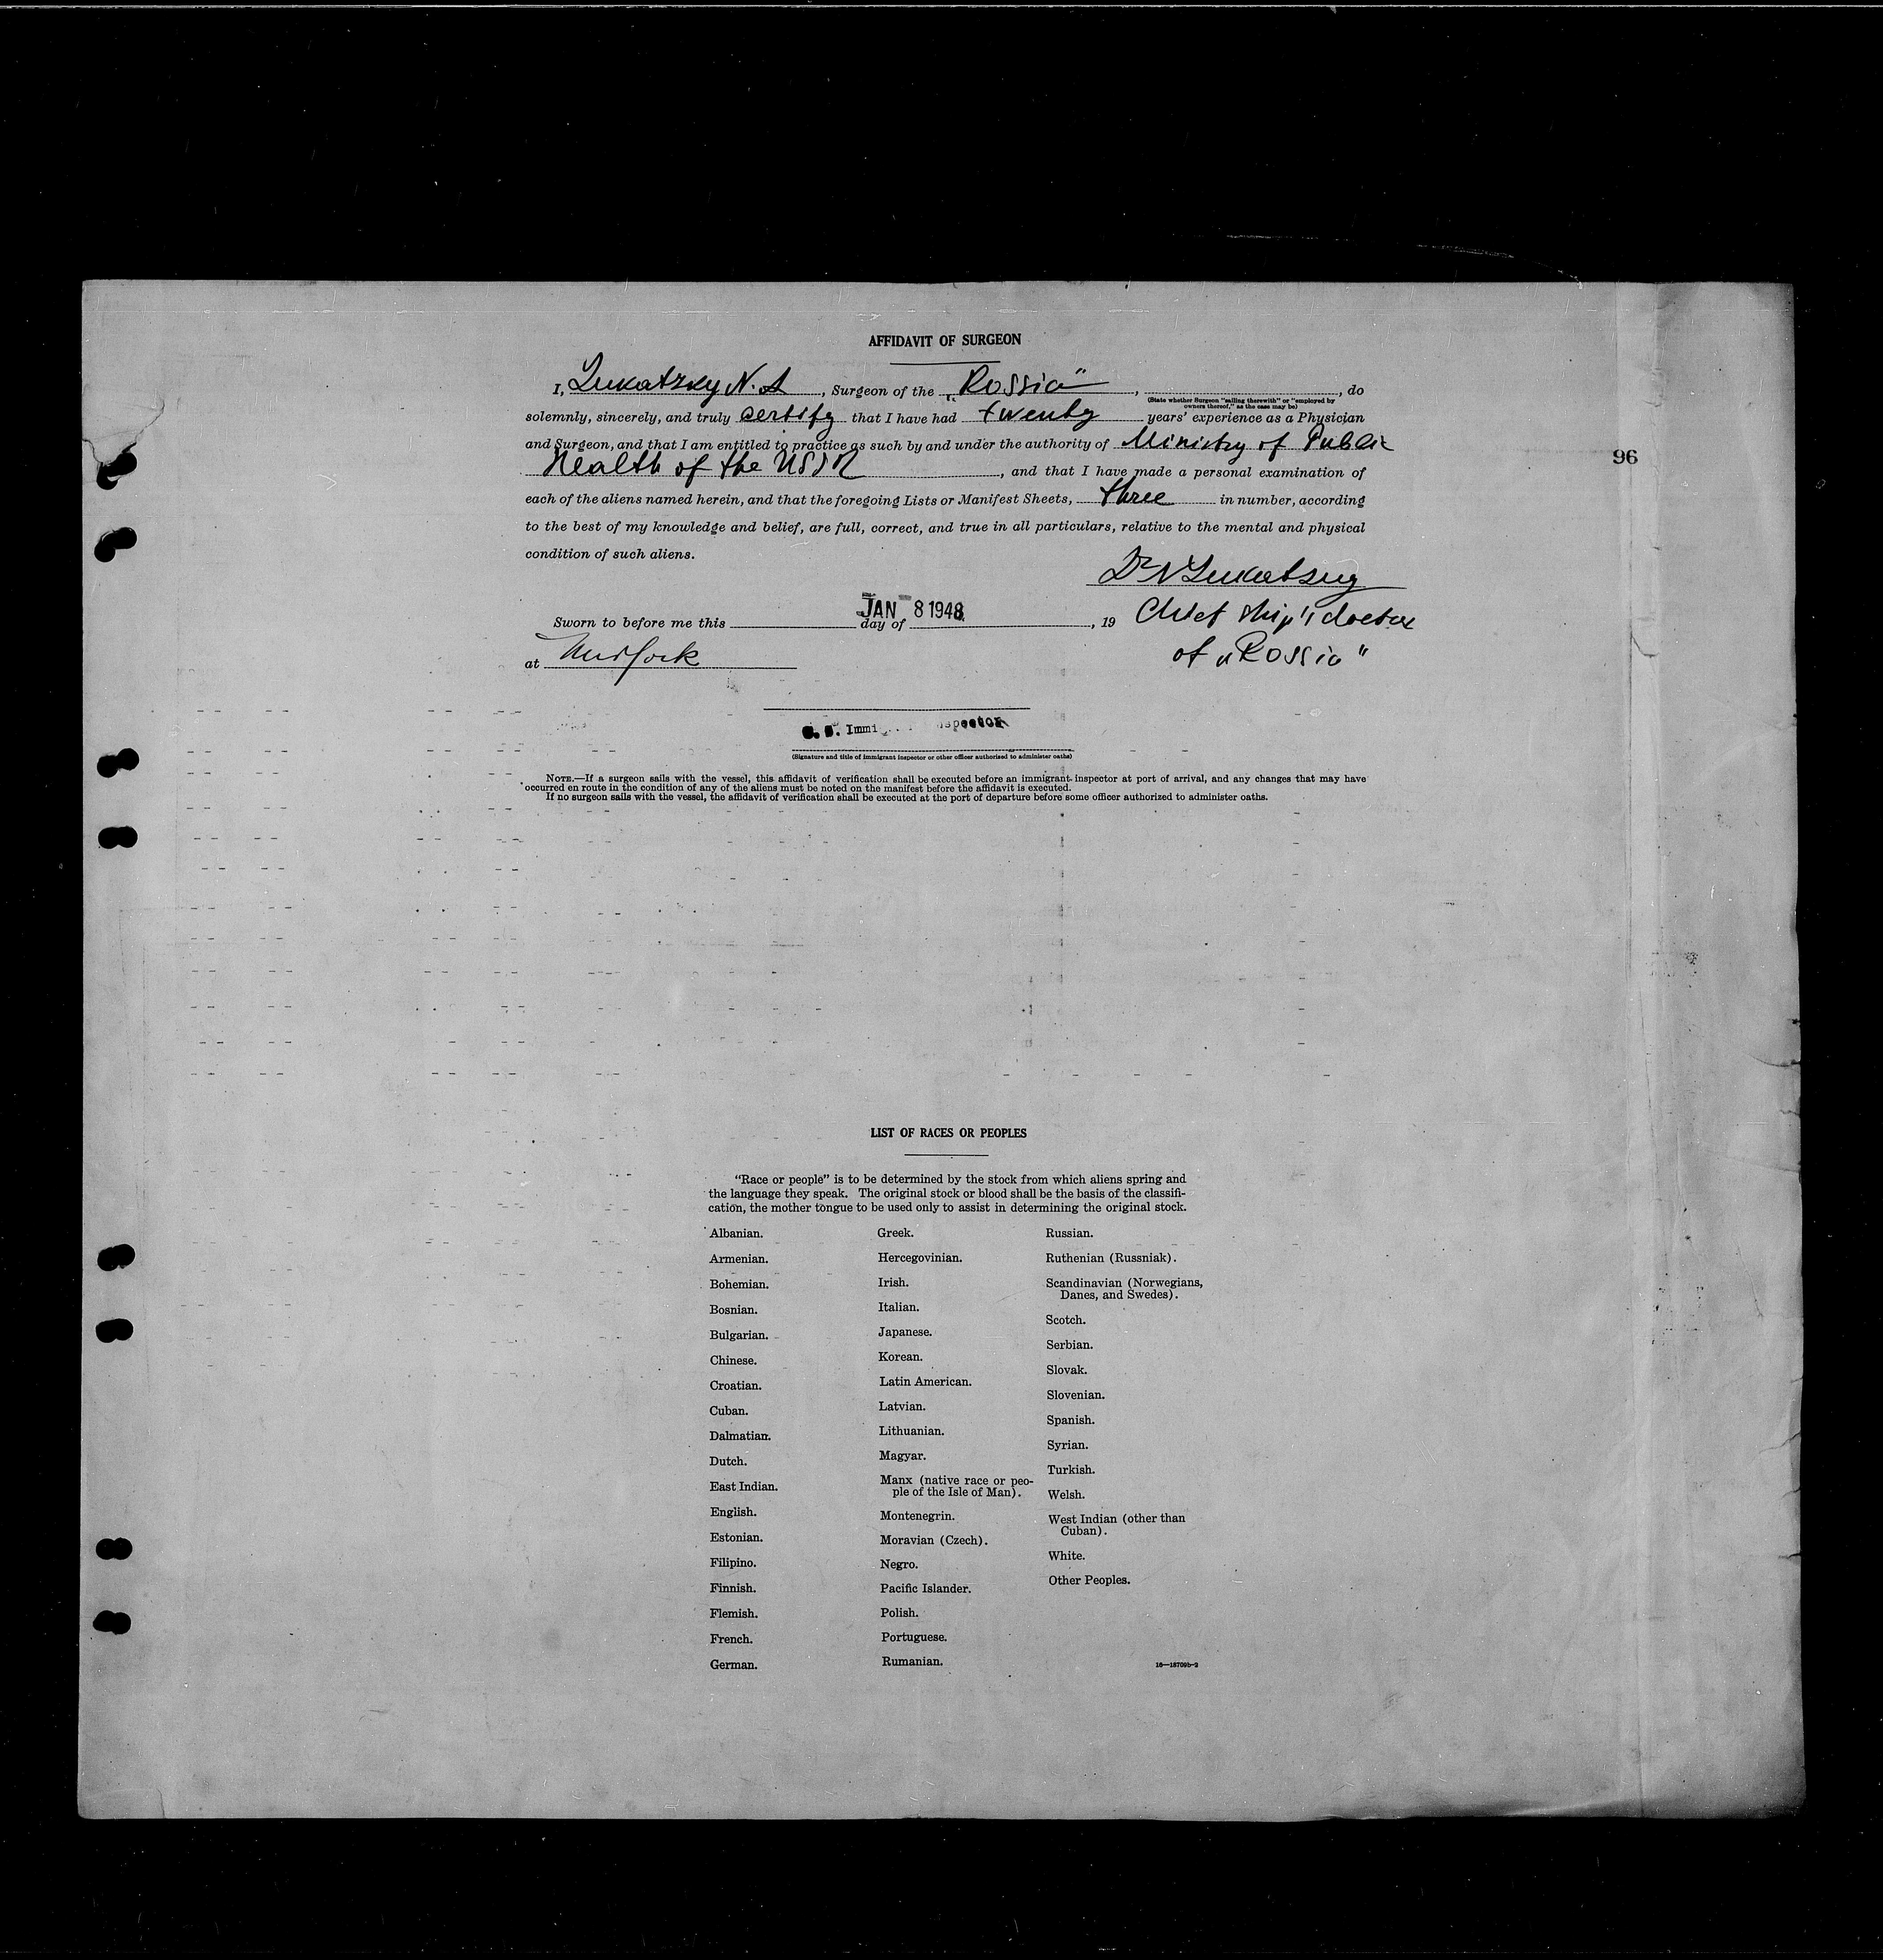 AFFIDAVIT OF SURGEON
I, Lukatzky N. A, Surgeon of the „Rossia", , do
(State whether Surgeon "sailing therewith" or "employed by
owners thereof," as the case may be)
solemnly, sincerely, and truly certify that I have had twenty years' experience as a Physician
and Surgeon, and that I am entitled to practice as such by and under the authority of Ministry of Public
Health of the USSR, and that I have made a personal examination of
each of the aliens named herein, and that the foregoing Lists or Manifest Sheets, three in number, according
to the best of my knowledge and belief, are full, correct, and true in all particulars, relative to the mental and physical
condition of such aliens.
96
Dr N Lukatzky
Sworn to before me this day of JAN 8 1948, 19
Chief ship's doctor
of „Rossia"
at New York
U. S. Immi Inspector
(Signature and title of immigrant inspector or other officer authorized to administer oaths)
NOTE.—If a surgeon sails with the vessel, this affidavit of verification shall be executed before an immigrant inspector at port of arrival, and any changes that may have
occurred en route in the condition of any of the aliens must be noted on the manifest before the affidavit is executed.
If no surgeon sails with the vessel, the affidavit of verification shall be executed at the port of departure before some officer authorized to administer oaths.
LIST OF RACES OR PEOPLES
"Race or people" is to be determined by the stock from which aliens spring and
the language they speak. The original stock or blood shall be the basis of the classifi-
cation, the mother tongue to be used only to assist in determining the original stock.
Albanian.
Armenian.
Bohemian.
Bosnian.
Bulgarian.
Chinese.
Croatian.
Cuban.
Dalmatian.
Dutch.
East Indian.
English.
Estonian.
Filipino.
Finnish.
Flemish.
French.
German.
Greek.
Hercegovinian.
Irish.
Italian.
Japanese.
Korean.
Latin American.
Latvian.
Lithuanian.
Magyar.
Manx (native race or peo-
ple of the Isle of Man).
Montenegrin.
Moravian (Czech).
Negro.
Pacific Islander.
Polish.
Portuguese.
Rumanian.
Russian.
Ruthenian (Russniak).
Scandinavian (Norwegians,
Danes, and Swedes).
Scotch.
Serbian.
Slovak.
Slovenian.
Spanish.
Syrian.
Turkish.
Welsh.
West Indian (other than
Cuban).
White.
Other Peoples.
16—18709b-2